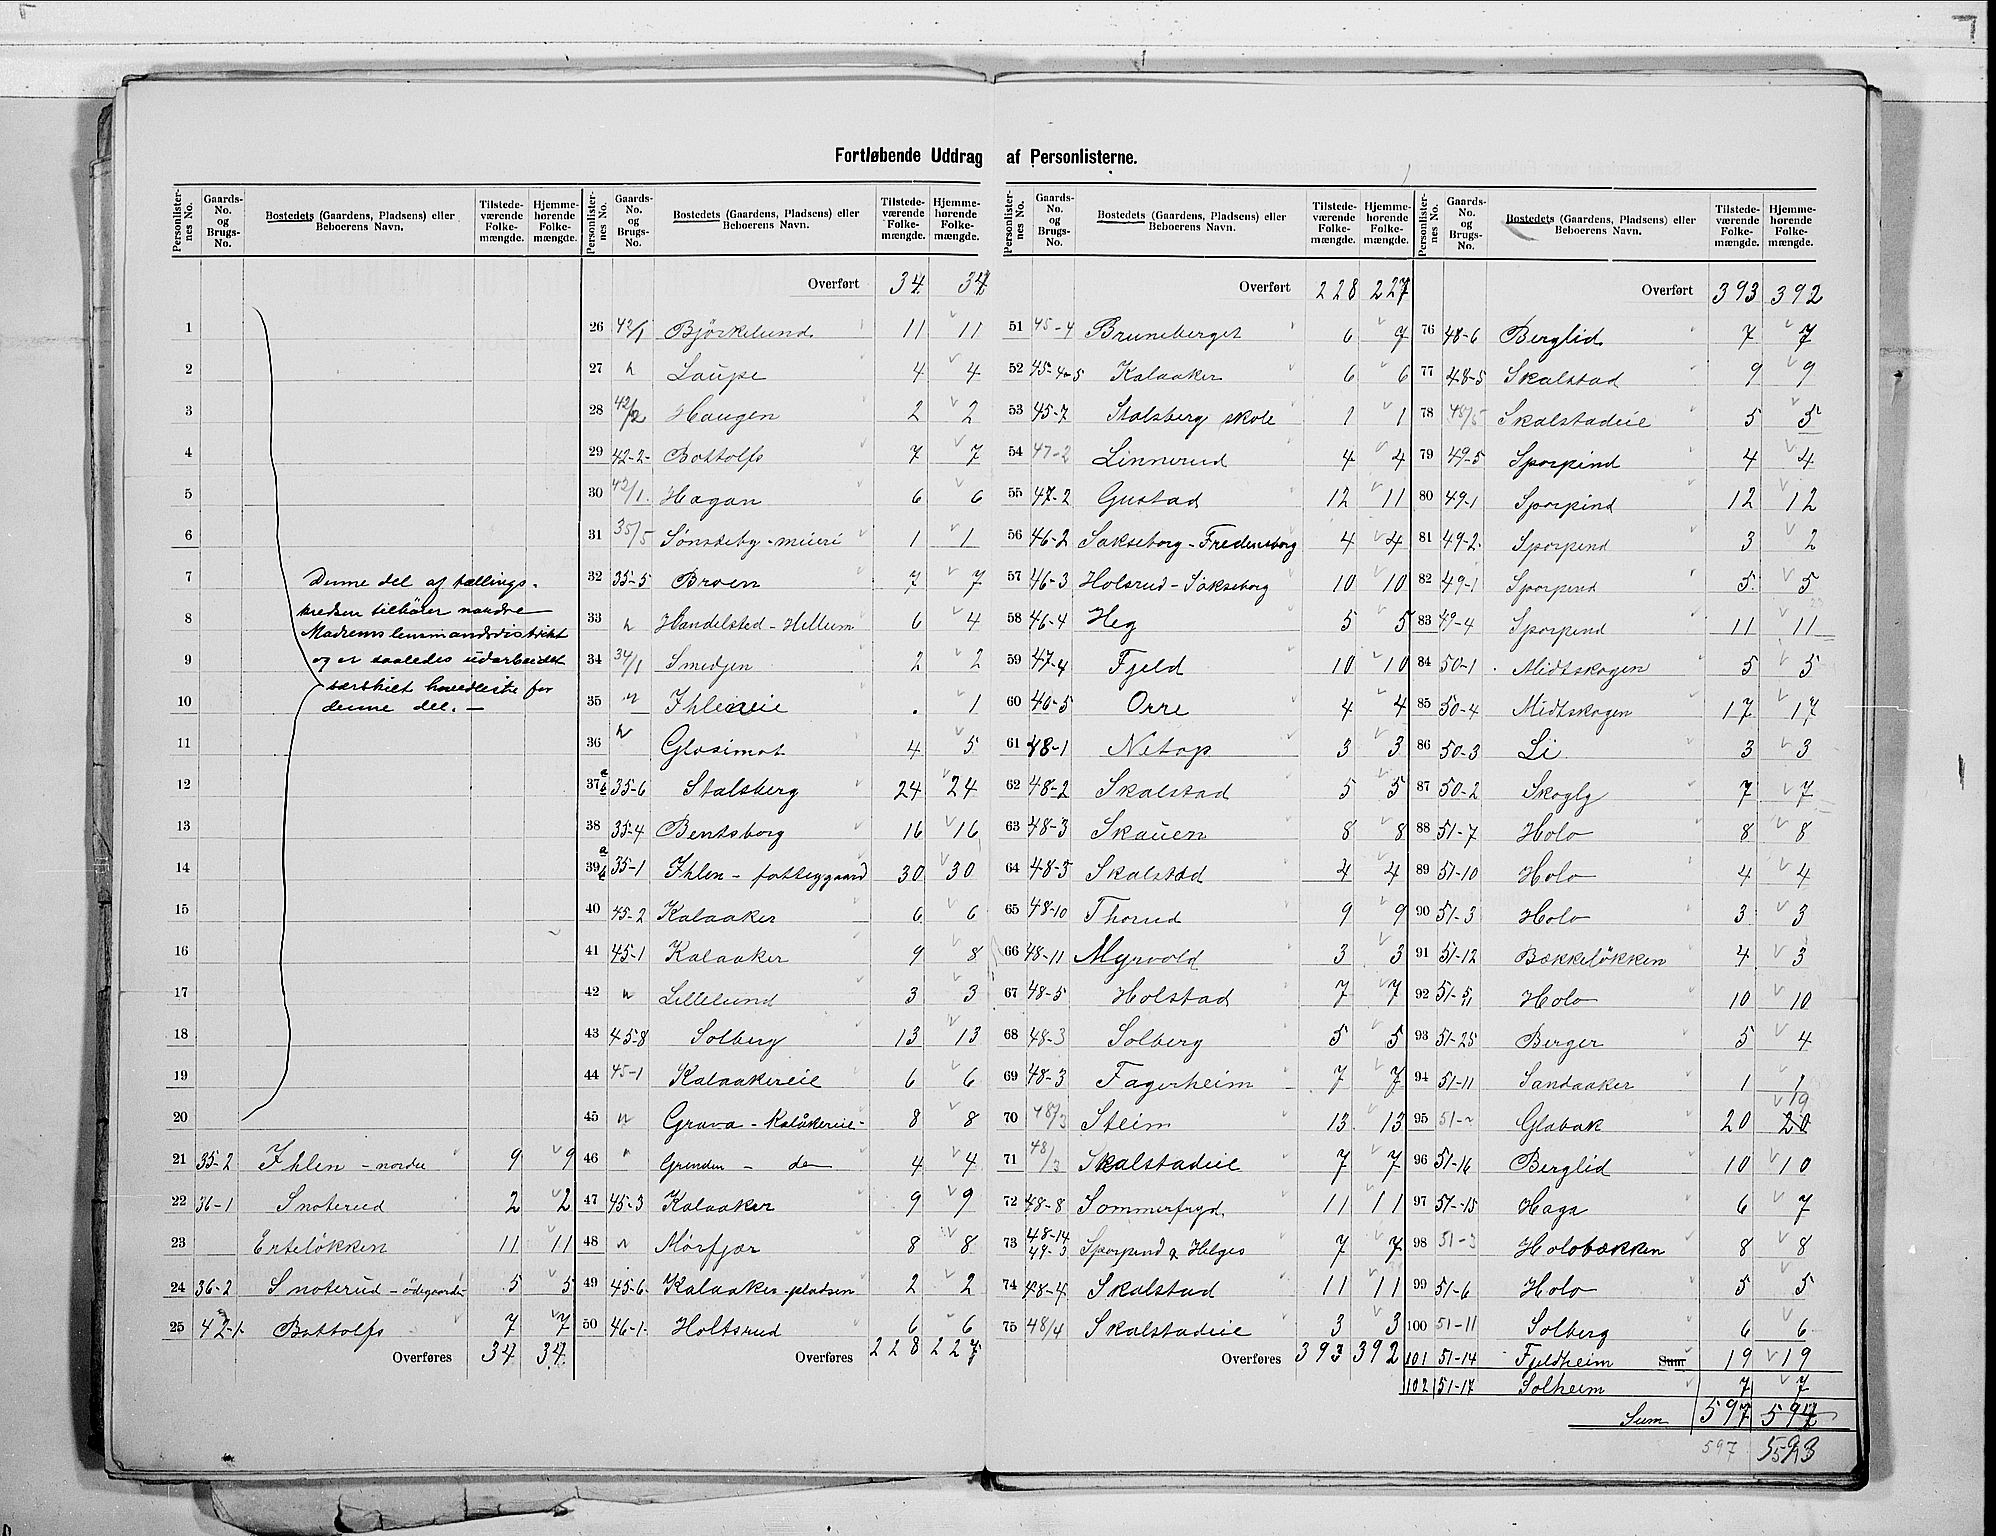 Fortløbende Uddrag af Personlisterne.
Personlisternes No. | Gaards-No. og Brugs-No. | Bostedets (Gaardens, Pladsens) eller Beboerens Navn. | Tilstedeværende Folkemængde. | Hjemmehørende Folkemængde.
1
2
3
4
5
6
7
8
9
10
11
12
13
14
15
16
17
18
19
20
Denne del af tællings-
kredsen tilhører nordre
lensmandsdistrikt
og er saaledes udarbeidet
særskilt hovedliste for
denne del. —
21 35-2 Ihlen - nordre 9 9
22 36-1 Snoterud 2 2
23 Erteløkken 11 11
24 36-2 Snoterud - ödegaarden 5 5
25 42-1 Bottolfs 7 7
Overføres 34 34
Personlisternes No. | Gaards-No. og Brugs-No. | Bostedets (Gaardens, Pladsens) eller Beboerens Navn. | Tilstedeværende Folkemængde. | Hjemmehørende Folkemængde.
Overført 34 34
26 42/1 Bjørkelund 11 11
27 " Laupe 4 4
28 42/2 Haugen 2 2
29 42-2- Bottolfs 7 7
30 42/1. Hagan 6 6
31 35/5 Sønsteby - mieri 1 1
32 35-5 Broen 7 7
33 " Handelsted - Hellum 6 4
34 34/1 Smedjen 2 2
35 " Ihleneie . 1
36 " Glosimot 4 5
37 a b 35-6 Stalsberg 24 24
38 35-4 Bentsborg 16 16
39 a b 35-1 Ihlen - fattiggaard 30 30
40 45-2 Kalaaker 6 6
41 45-1 Kalaaker 9 8
42 " Lillelund 3 3
43 45-8 Solberg 13 13
44 45-1 Kalaakereie 6 6
45 " Grava - Kalåkereie- 8 8
46 " Grenden - do 4 4
47 45-3 Kalaaker 9 9
48 " Mørfjær 8 8
49 45-6 Kalaaker-pladsen 2 2
50 46-1. Holtsrud 6 6
Overføres 228 227
Personlisternes No. | Gaards-No. og Brugs-No. | Bostedets (Gaardens, Pladsens) eller Beboerens Navn. | Tilstedeværende Folkemængde. | Hjemmehørende Folkemængde.
Overført 228 227
51 45-4 Bruneberget 6 7
52 45-4-5 Kalaaker 6 6
53 45-7 Stalsberg skole 1 1
54 47-2 Linnerud 4 4
55 47-2 Gustad 12 11
56 46-2 Sakseborg - Fredensborg 4 4
57 46-3 Holsrud - Sakseborg 10 10
58 46-4 Heg 5 5
59 47-4 Fjeld 10 10
60 46-5 Orre 4 4
61 48-1 Netop 3 3
62 48-2 Skalstad 5 5
63 48-3 Skauen 8 8
64 48-3 Skalstad 4 4
65 48-10 Thorud 9 9
66 48-11 Myrvold 3 3
67 48-5 Holstad 7 7
68 48-3 Solberg 5 5
69 48-3 Fagerheim 7 7
70 48/3 Steim 13 13
71 48/3 Skalstadeie 7 7
72 48-8 Sommerfryd 11 11
73 48-14 49-3 Sporpend & Helges 7 7
74 48-4 Skalstad 11 11
75 48/4 Skalstadeie 3 3
Overføres 393 392
Personlisternes No. | Gaards-No. og Brugs-No. | Bostedets (Gaardens, Pladsens) eller Beboerens Navn. | Tilstedeværende Folkemængde. | Hjemmehørende Folkemængde.
Overført 393 392
76 48-6 Berglid 7 7
77 48-5 Skalstad 9 9
78 48/5 Skalstadeie 5 5
79 49-5 Sporpind 4 4
80 49-1 Sporpind 12 12
81 49-2 Sporpend 3 2
82 49-1 Sporpend 5 5
83 49-4 Sporpend 11 11
84 50-1 Midtskogen 5 5
85 50-4 Midtskogen 17 17
86 50-3 Li 3 3
87 50-2 Skogly 7 7
88 51-7 Holo 8 8
89 51-10 Holo 4 4
90 51-3 Holo 3 3
91 51-12 Bækkeløkken 4 3
92 51-5 11 Holo 10 10
93 51-25 Berger 5 4
94 51-11 Sandaaker 1 1
95 51-" Glabak 20 19 20
96 51-16 Berglid 10 10
97 51-15 Haga 6 7
98 51-3 Holobækken 8 8
99 51-6 Holo 5 5
100 51-11 Solberg 6 6
101 51-14 Fjeldheim Sum 19 19
102 51-17 Solheim 7 7
Sum 597 597
597 593